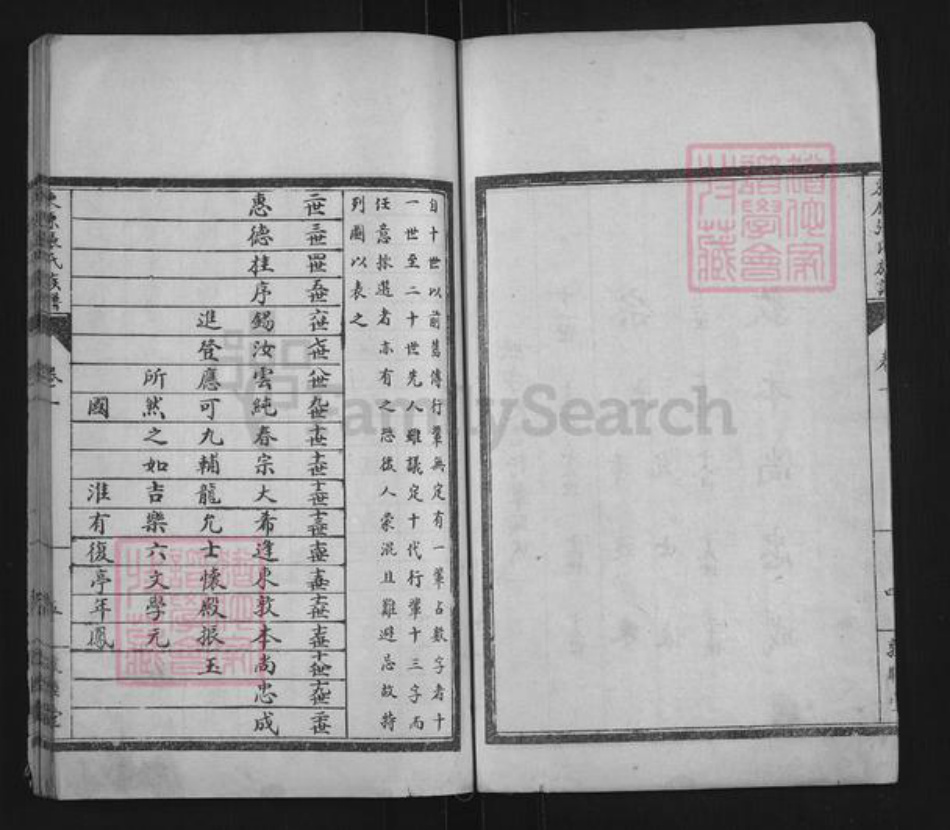 自十世以前舊傳行輩無定有一輩占數字者十
一世至二十世先人雖議定十代行輩十三字而
任意採選者亦有之恐後人蒙混且難避忌故特
列圖以表之
二世 三世 四世 五世 六世 七世 八世 九世 十世 十一世 十二世 十三世 十四世 十五世 十六世 十七世 十八世 十九世 二十世
惠德桂序錫汝雲純春宗大希逢東敦本尚忠成
進登應可九輔龍允士懷殿振玉
所然之如吉樂六文學元
國 淮有復亭年鳳
氏族譜 卷一 五 堂
FamilySearch
猶他家譜學會